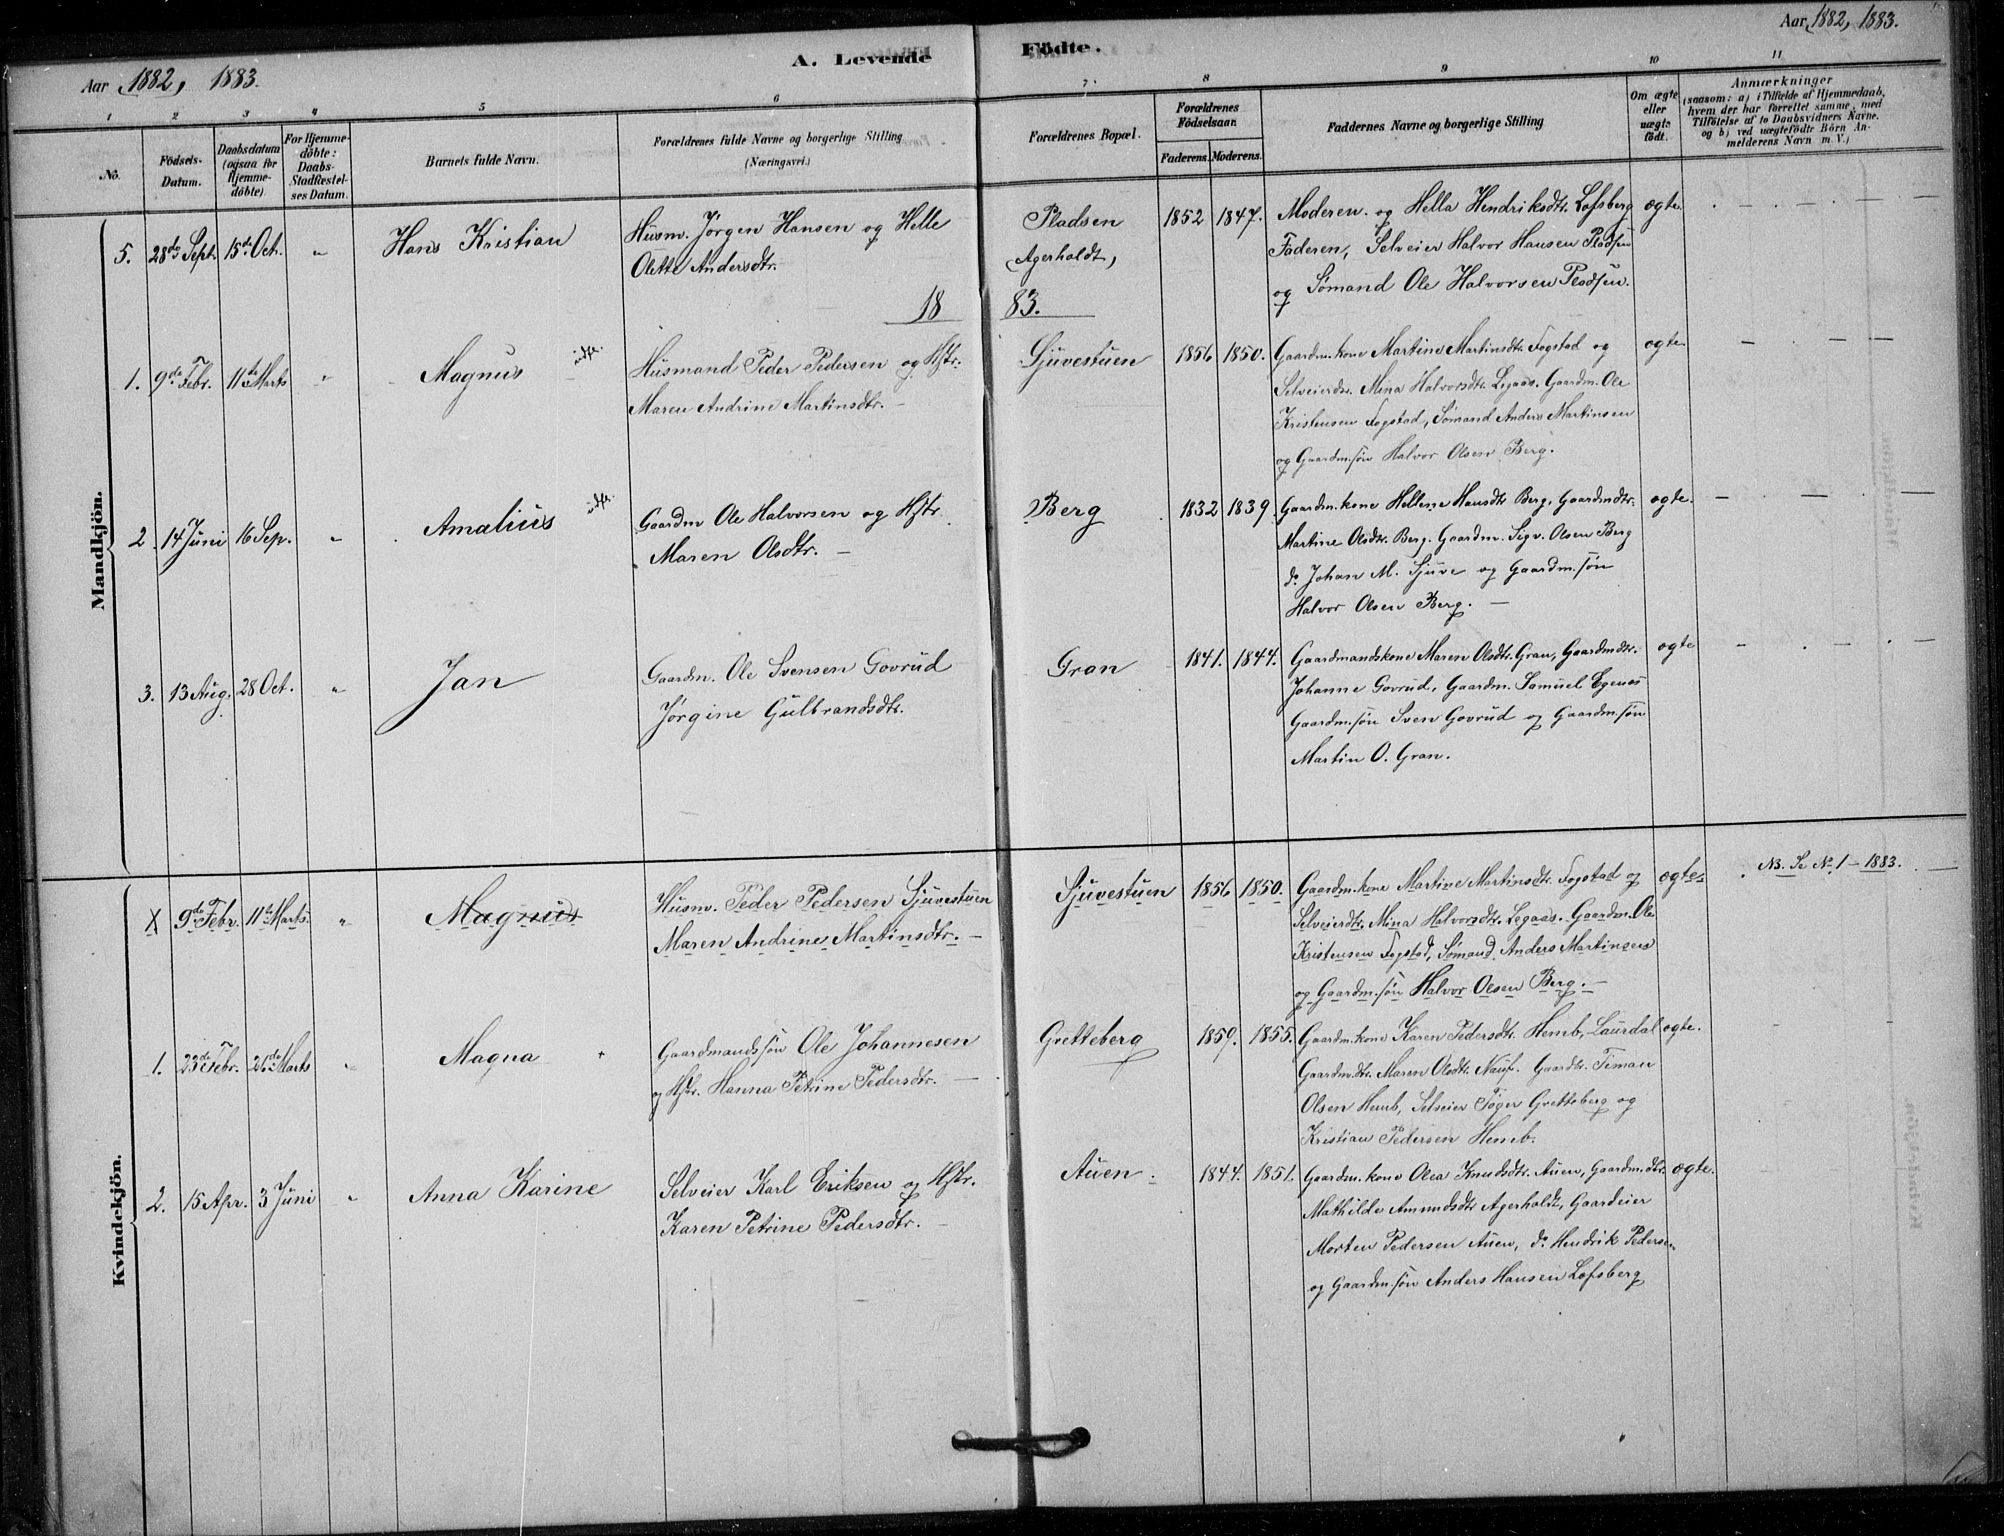 Aar 1882, 1883.
A. Levende
Födte.
Aar 1882, 1883.
1 2 3 4 5 6 7 8 9 10 11
No.
Födsels-
Datum.
Daabsdatum
(ogsaa for
Hjemme-
döbte)
For Hjemme-
döbte:
Daabs-
Stadfæstel-
ses Datum.
Barnets fulde Navn.
Forældrenes fulde Navne og borgerlige Stilling
(Næringsvei.)
Forældrenes Bopæl.
Forældrenes
Födselsaar.
Faderens. Moderens.
Faddernes Navne og borgerlige Stilling
Om ægte
eller
uægte
födt.
Anmærkninger
(saasom: a) i Tilfælde af Hjemmedaab,
hvem der har forrettet samme, med
Tilföielse af to Daabsvidners Navne,
og b) ved uægtefödte Börn An-
melderens Navn m. V.)
Mandkjön.
5. 28de Sept. 15de Oct. " Hans Kristian
Husm. Jørgen Hansen og Helle
Olette Andersdtr.
Pladsen
(Agerholdt)
1852 1847.
Moderen og Hella Hendriksdtr. Lofsberg
Faderen, Selveier Halvor Hansen Pladsen
og Sømand Ole Halvorsen Pladsen.
ægte
18 83.
1. 9de Febr. 11te Marts " Magnus
Husmand Peder Pedersen og Hstr.
Maren Andrine Martinsdtr. —
Sjuvestuen
1856 1850.
Gaardm.kone Martine Martinsdtr. Fogstad og
Selveierdtr. Mina Halvorsdtr. Legaas. Gaardm. Ole
Kristensen Fogstad, Sømand Anders Martinsen
og Gaardm.søn Halvor Olsen Berg.
ægte
2. 14 Juni 16 Sep. " Amalius
Gaardm. Ole Halvorsen og Hstr.
Maren Olsdtr. —
Berg
1832 1839.
Gaardm.kone Hellene Hansdtr. Berg, Gaardmdtr.
Martine Olsdtr. Berg. Gaardm. Sigv. Olsen Berg
do Johan M. Sjuve og Gaardm.søn
Halvor Olsen Berg. —
ægte.
3. 13 Aug. 28 Oct. " Jan
Gaardm. Ole Svensen Govrud
Jørgine Gulbrandsdtr.
Gran
1841. 1844.
Gaardmandskone Maren Olsdtr. Gran, Gaardmdtr.
Johanne Govrud, Gaardm. Samuel Egenæs
Gaardm.søn Sven Govrud og Gaardm.søn
Martin O. Gran.
ægte
Kvindekjön.
X 9de Febr. 11te Marts. " Magnus
Husm. Peder Pedersen Sjuvestuen
Maren Andrine Martinsdtr. —
Sjuvestuen
1856 1850.
Gaardm.kone Martine Martinsdtr. Fogstad og
Selveierdtr. Mina Halvorsdtr. Legaas. Gaardm. Ole
Kristensen Fogstad, Sømand Anders Martinsen
og Gaardm.søn Halvor Olsen Berg. —
ægte
NB. Se No. 1 – 1883.
1. 23de Febr. 26de Marts " Magna
Gaardmandssøn Ole Johannesen
og Hstr. Hanna Petrine Pedersdtr. —
Gretteberg
1859. 1855.
Gaardm.kone Karen Pedersdtr. Hemb, Laurdal
Gaardm.dtr. Maren Olsdtr. Gaardtr. Timan
Olsen Hemb, Selveier Gretteberg og
Kristian Pedersen Hemb.
ægte.
2. 15 Apr. 3 Juni " Anna Karine
Selveier Karl Eriksen og Hstr.
Karen Petrine Pedersdtr. —
Auen.
1844. 1851.
Gaardm.kone Olea Knudsdtr. Auen, Gaardm.dtr.
Mathilde Amundsdtr Agerholdt, Gaardeier
Morten Pedersen Auen, do Hendrik Pedersen
og Gaardm.søn Anders Hansen Lofsberg
ægte.